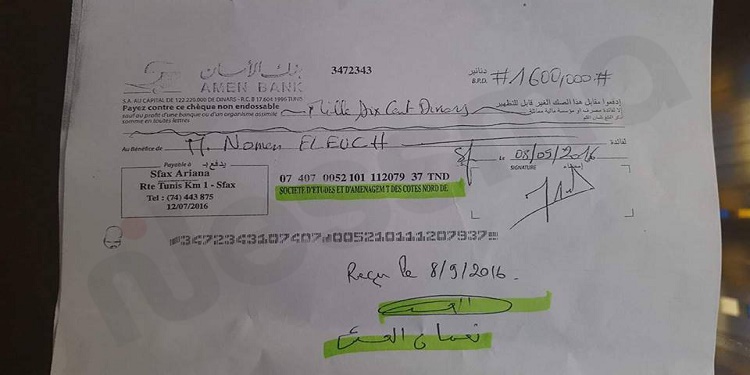 بنك الأمان
AMEN BANK
3472343
دنانير
B.P.D. #1600,000#
S.A. AU CAPITAL DE 122.220.000 DE DINARS - R.C. B 17 604 1996 TUNIS
Payez contre ce chèque non endossable
sauf au profit d'une banque ou d'un organisme assimilé
comme en toutes lettres
Mille Six Cent Dinars
إدفعوا مقابل هذا الصك الغير قابل للتظهير
Au Bénéfice de M. Nomen FLEUCH
لفائدة
Payable à يدفع بـ
Sfax Ariana
Rte Tunis Km 1 - Sfax
Tel : (74) 443 875
12/07/2016
Sf Le 08/09/2016
SIGNATURE إمضاء
07 407 0052 101 112079 37 TND
SOCIETE D'ETUDES ET D'AMENAGEM T DES COTES NORD DE
3472343107407 005210111207937
Reçu le 8/9/2016.
نعمان الفش